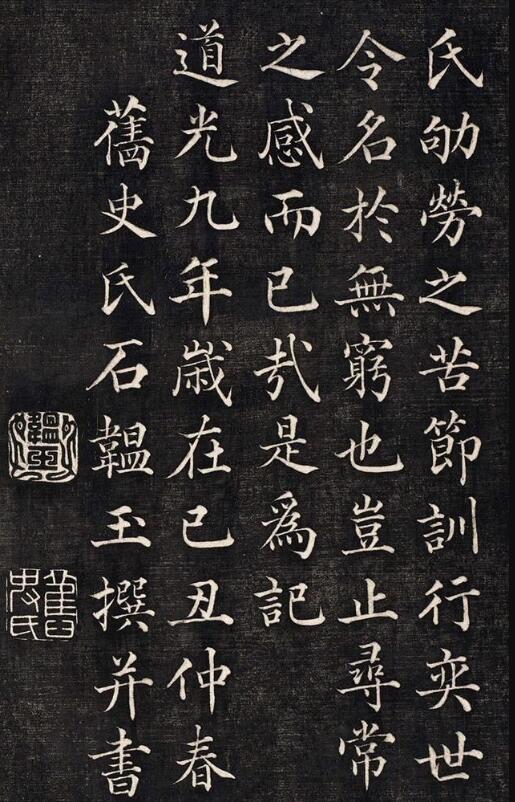 氏劬勞之苦節訓行奕世
令名於無窮也豈止尋常
之感而已哉是爲記
道光九年歲在己丑仲春
舊史氏石韞玉撰并書
韞玉
舊史氏